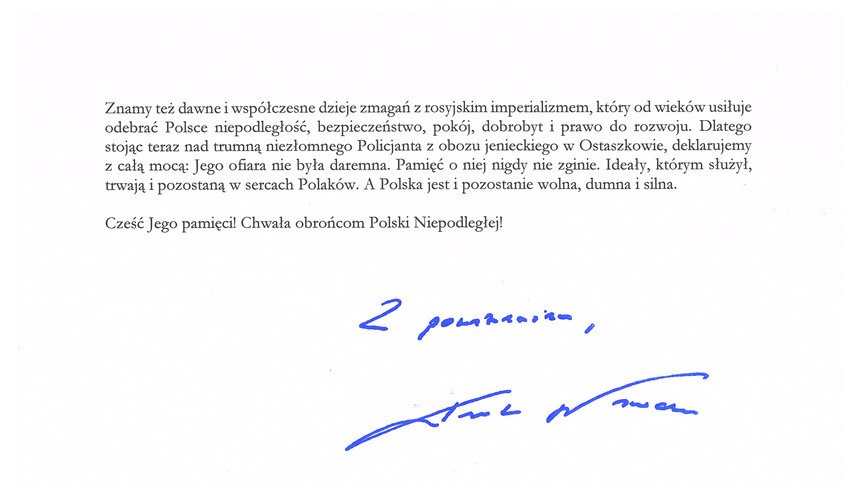 Znamy też dawne i współczesne dzieje zmagań z rosyjskim imperializmem, który od wieków usiłuje
odebrać Polsce niepodległość, bezpieczeństwo, pokój, dobrobyt i prawo do rozwoju. Dlatego
stojąc teraz nad trumną niezłomnego Policjanta z obozu jenieckiego w Ostaszkowie, deklarujemy
z całą mocą: Jego ofiara nie była daremna. Pamięć o niej nigdy nie zginie. Ideały, którym służył,
trwają i pozostaną w sercach Polaków. A Polska jest i pozostanie wolna, dumna i silna.
Cześć Jego pamięci! Chwała obrońcom Polski Niepodległej!
Z poważaniem,